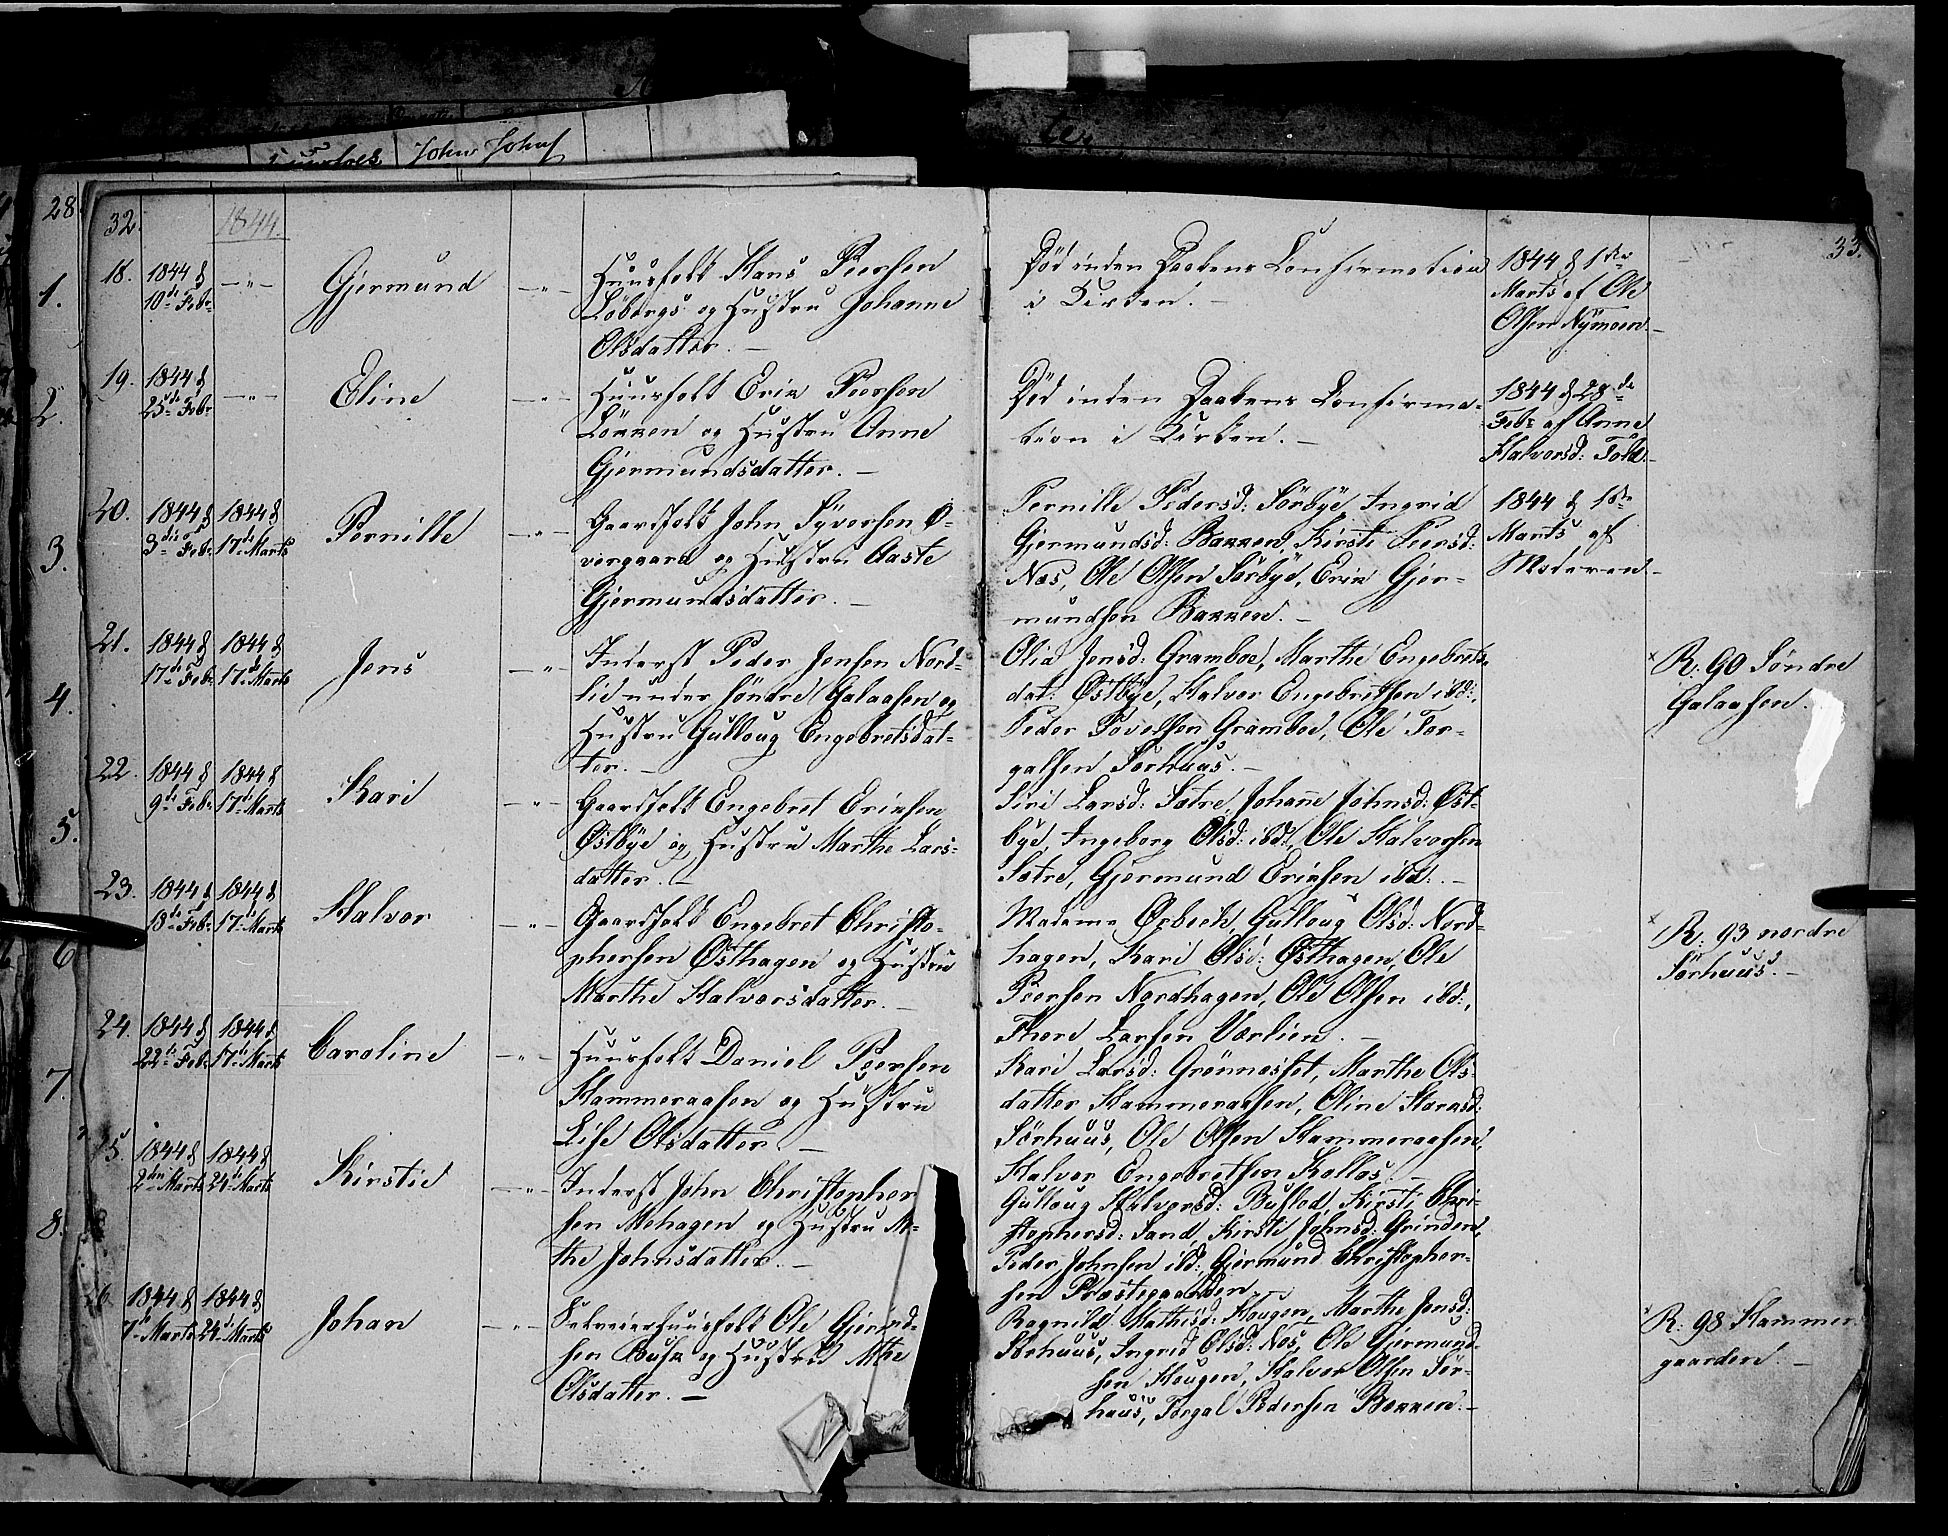 Johns Johns
28
32
1844.
33.
18. 1844 d 10de Febr. —"— Gjermund —"—
Huusfolk Hans Peersen
Löbergs og Hustru Johanne
Olsdatter. —
Död inden Daabens Confirmation
i Kirken. —
1844 d 1ste
Marts af Ole
Olsen Nÿmoen —
1.
19. 1844 d 25de Febr —"— Eline —"—
Huusfolk Erik Peersen
Lökken og Hustru Anne
Gjermundsdatter. —
Död inden Daabens Confirma-
tion i Kirken. —
1844 d 28de
Febr af Anne
Halvorsd:
2.
20. 1844 d 3die Febr. 1844 d 17de Marts Pernille —"—
Gaardfolk John Syversen Ø-
vergaard og Hustru Aaste
Gjermundsdatter. —
Pernille Pedersd: Sörbye, Ingrid
Gjermundsd: Bakken, Kirsti Peersd:
Næs, Ole Olsen Sörbye, Erik Gjer-
mundsen Bakken. —
1844 d 1ste
Marts af
Moderen. —
3.
21. 1844 d 17de Febr. 1844 d 17de Marts Jens —"—
Inderst Peder Jensen Nord-
lie under söndre Galaasen og
Hustru Gulloug Engebretsdat-
ter. —
Olia Jensd: Gramboe, Marthe Engebrets-
dat: Østbÿe, Halvor Engebretsen ibd:,
Peder Povelsen Gramboe, Ole Tor-
galsen Sörhuus. —
× R: 90 Söndre
Galaasen.
4.
22. 1844 d 9de Febr. 1844 d 17de Marts Kari —"—
Gaardfolk Engebret Eriksen
Østbÿe og Hustru Marthe Lars-
datter. —
Siri Larsd: Sætre, Johanne Johnsd: Øst-
bye, Ingeborg Olsd: ibd:, Ole Halvorsen
Sætre, Gjermund Eriksen ibd: —
5.
23. 1844 d 18de Febr. 1844 d 17de Marts Halvor —"—
Gaardfolk Engebret Christo-
phersen Østhagen og Hustru
Marthe Halvorsdatter. —
Madame Ørbech, Gulloug Olsd: Nord-
hagen, Kari Olsd: Østhagen, Ole
Peersen Nordhagen, Ole Olsen ibd:,
Thore Larsen Værlien. —
× R: 93 nordre
Sörhuus. —
6
24. 1844 d 22de Febr. 1844 d 17de Marts Caroline —"—
Huusfolk Daniel Peersen
Hammeraasen og Hustru
Lise Olsdatter. —
Kari Larsd: Grönnæset, Marthe Ols-
datter Hammeraasen, Eline
Sörhuus, Ole Olsen Hammeraasen,
Halvor Engebretsen Kollos. —
7.
25. 1844 d 2den Marts 1844 d 24de Marts Kirstie —"—
Inderst John Christopher
sen Mehagen og Hustru M-
the Johnsdatter. —
Gulloug Halvorsd: Kirsti Chri-
stophersd: Sand, Kirsti Johnsd: Grinden,
Peder Johnsen ibd:, Gjermund Christopher-
sen Præstegaarden.
8.
26. 1844 d 7de Marts 1844 d 24de Marts Johan —"—
Selveierhuusfolk Ole Gjermd-
sen Busk og Hustru Mthe
Olsdatter. —
Ragnild Mathisd: Hougen, Marthe Jensd:
Sörhuus, Ingrid Olsd: Næs, Ole Gjermund-
sen Hougen, Halvor Olsen Sör-
huus, Torgal Pedersen Bakken. —
× R: 98 Hammer
gaarden. —